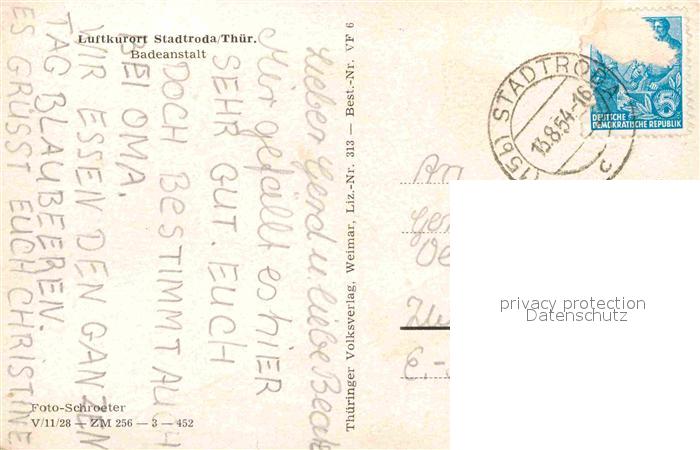 Luftkurort Stadtroda/Thür.
Badeanstalt
Lieber Gerd u. liebe Beate
Mir gefällt es hier
SEHR GUT. EUCH
DOCH BESTIMMT AUCH
BEI OMA.
WIR ESSEN DEN GANZEN
TAG BLAUBEEREN.
ES GRÜSST EUCH CHRISTINE
Foto-Schroeter
V/11/28 — ZM 256 — 3 — 452
Thüringer Volksverlag, Weimar, Liz.-Nr. 313 — Best.-Nr. VF 6
(15b) STADTRODA
13.8.54.-16
c
5
DEUTSCHE
DEMOKRATISCHE REPUBLIK
An
privacy protection
Datenschutz